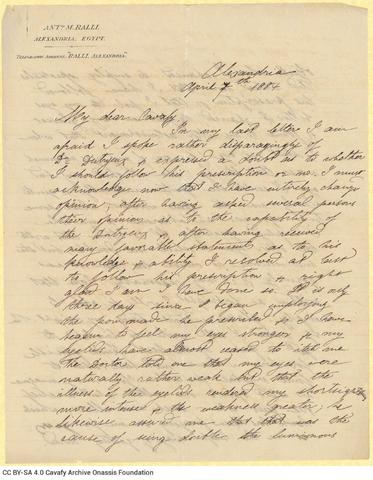 ANTo. M. RALLI.
ALEXANDRIA, EGYPT.
TELEGRAPHIC ADDRESS, "RALLI, ALEXANDRIA."
Alexandria
April 7th 1884
My dear Cavafy,
In my last letter I am
afraid I spoke rather disparagingly of
Dr Dutrieux & expressed a doubt as to whether
I should follow his prescription or no. I must
acknowledge now that I have entirely change
opinion; after having asked several persons
their opinion as to the capability of
the Dutrieux & after having received
many favorable statements as to his
knowledge & ability I resolved at last
to follow his prescription & right
glad I am I have done so. It is only
three days since I began employing
the pommade he prescribed & I have
begun to feel my eyes stronger & my
eyelids have almost ceased to itch me
the Doctor told me that my eyes were
naturally rather weak but that the
illness of the eyelids rendered my shortsight
more intense & the weakness greater; he
likewise assured me that that was the
cause of my seeing double the luminous
CC BY-SA 4.0 Cavafy Archive Onassis Foundation